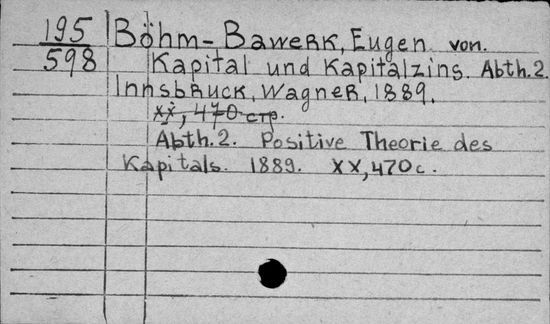 195
598
Böhm-Bawerk, Eugen von.
Kapital und Kapitalzins. Abth.2.
Innsbruck, Wagner, 1889.
XX, 470 стр.
Abth.2. Positive Theorie des
Kapitals. 1889. XX, 470 с.